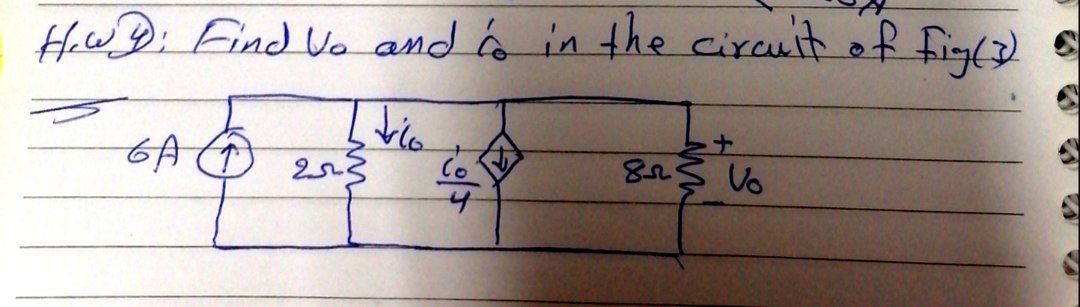 H.W 4: Find Vo and io in the circuit of Fig(3)
6A 2Ω io io/4 8Ω + Vo -